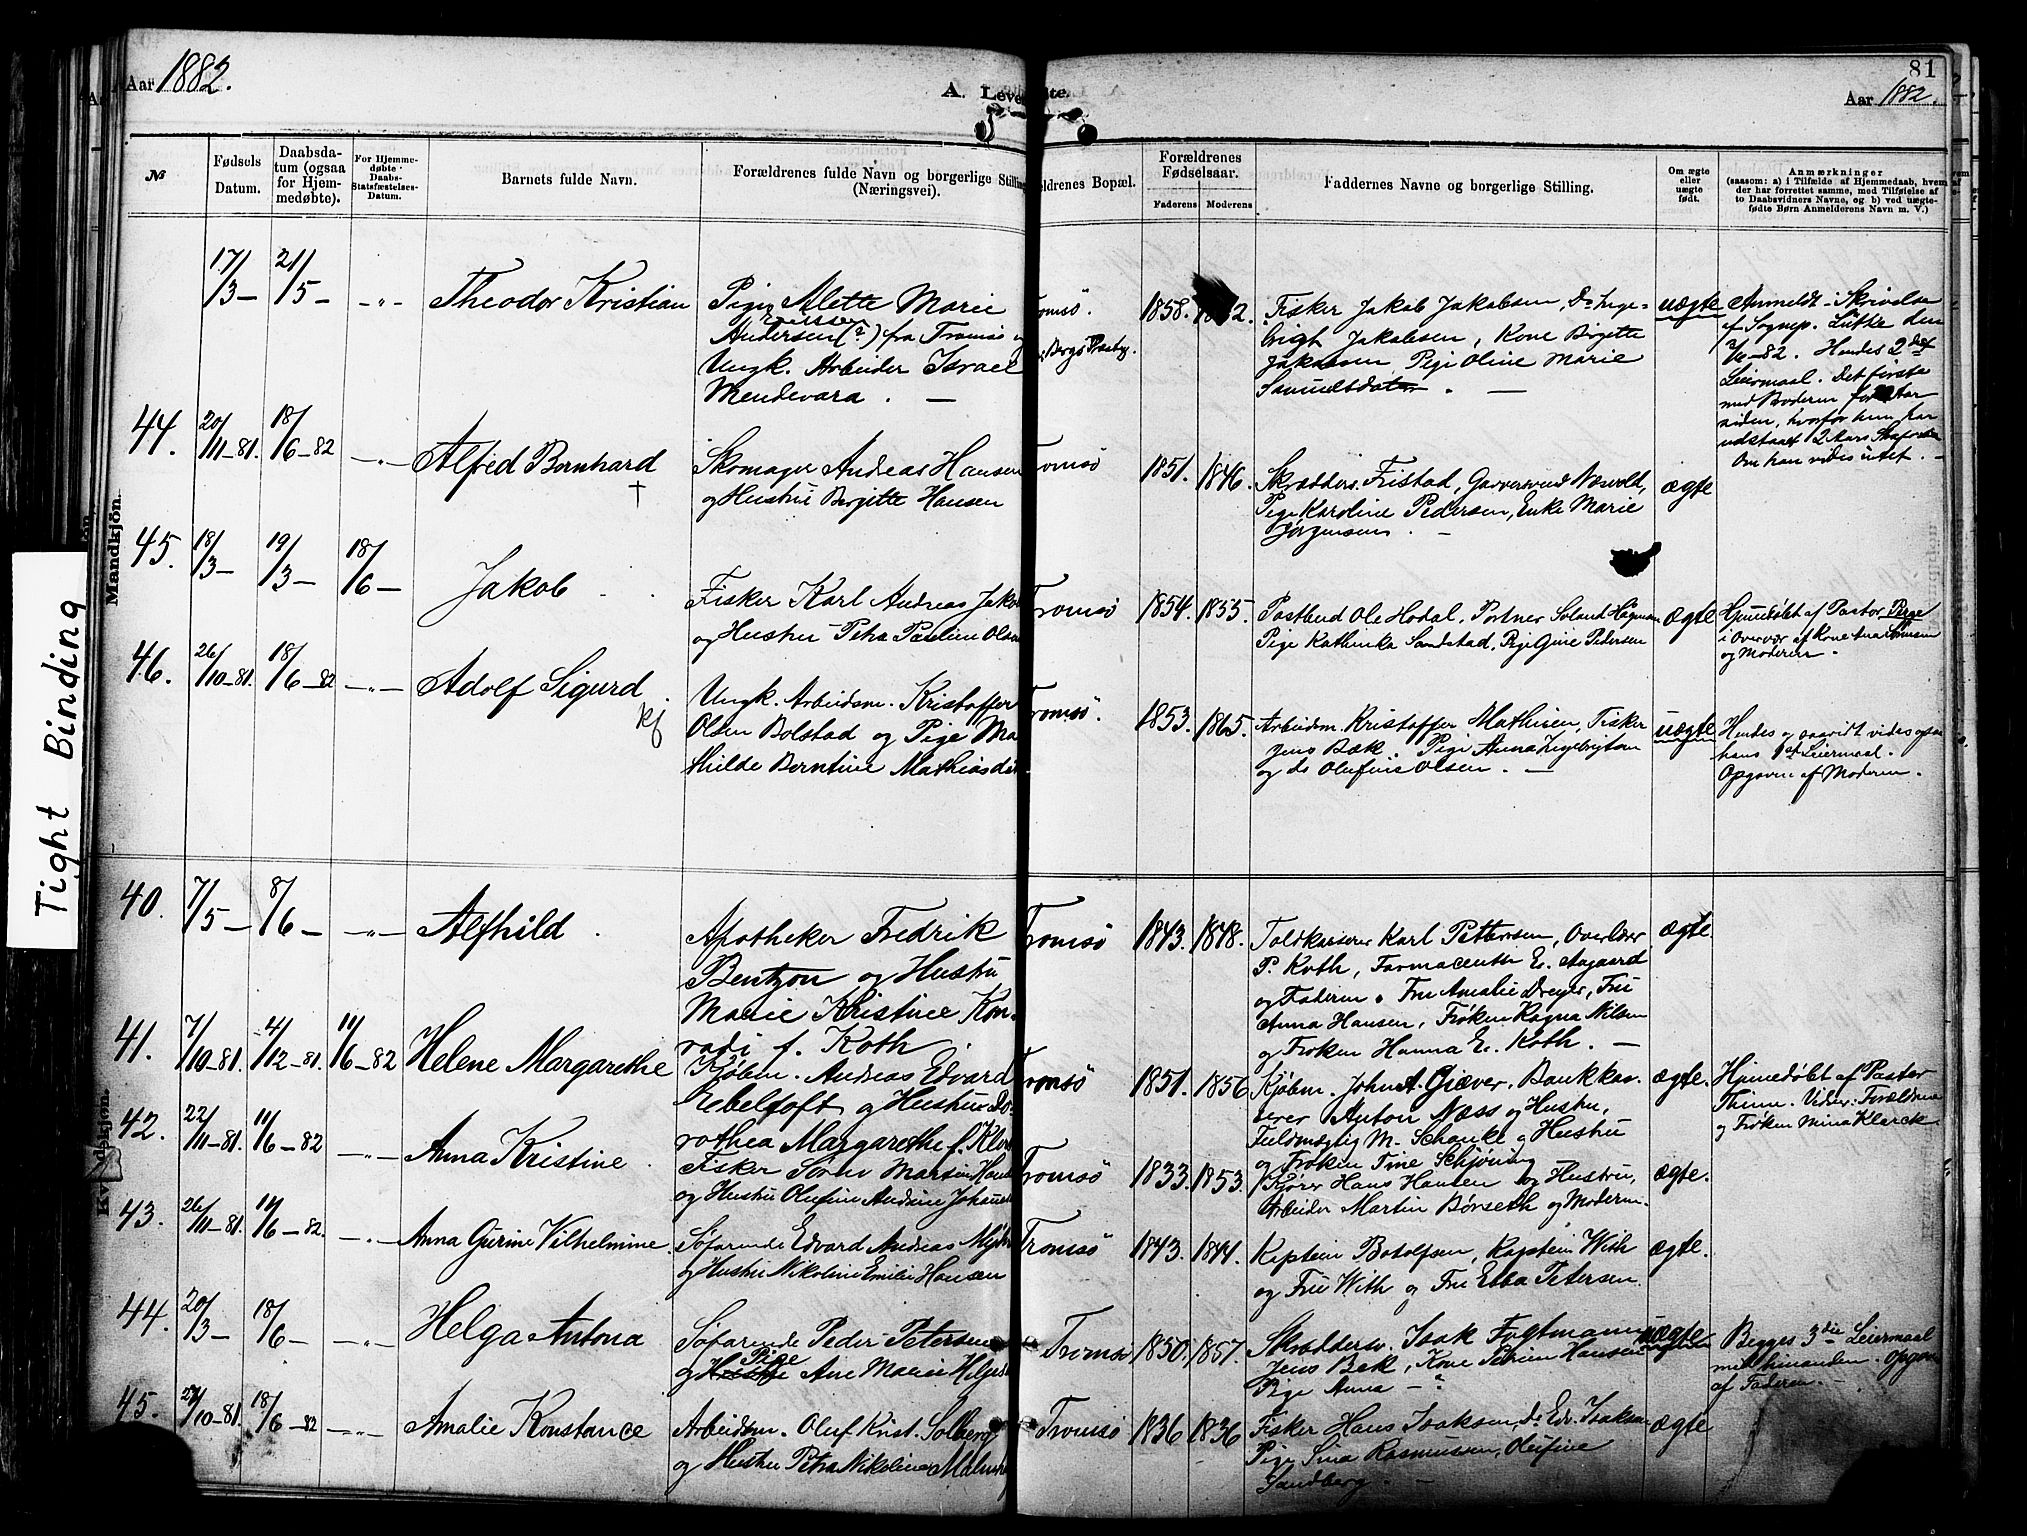 Aar 1882.
A. Leve
te.
81
Aar 1882.
№
Fødsels Datum.
Daabsdatum (ogsaa for Hjemmedøbte).
For Hjemmedøbte Daabs-Statsfæstelses-Datum.
Barnets fulde Navn.
Forældrenes fulde Navn og borgerlige Stilling (Næringsvei).
ldrenes Bopæl.
Forældrenes Fødselsaar.
Faderens
Moderens
Faddernes Navne og borgerlige Stilling.
Om ægte eller uægte født.
Anmærkninger
(saasom: a) i Tilfælde af Hjemmedaab, hvem der har forrettet samme, med Tilføielse af to Daabsvidners Navne, og b) ved uægtefødte Børn Anmelderens Navn m. V.)
Mandkjön.
Tight Binding
17/3 — 21/5 — -"- Theodor Kristian
Pige Alette Marie
Andersen (?) fra Tromsø og
Ungk. Arbeider Israel
Mendevara . —
Tromsø.
1858.
Fisker Jakob Jakobsen, Do Inge-
brigt Jakobsen, Kone Birgitte
Jakobsen, Pige Oline Marie
Samuelsdatter . —
uægte
Anmeldt i Skrivelse
af Sognep. Lütke den
82. Hendes 2det
Leiermaal. Det første
med Broderen for Aar
siden, hvorfor hun har
udstaaet 2 Aars
Om han vides intet. —
44. 20/11-81. 18/6-82 -"- Alfred Bernhard †
Skomager Andreas Hansen
og Hustru Birgitte Hansen
Tromsø
1851. 1846.
Skrædders. Fristad, Garversvend Næsvold,
Pige Karoline Pedersen, Enke Marie
Jørgensen . —
ægte
45. 18/3 — 19/3 — 18/6 — Jakob
Fisker Karl Andreas Jako
og Hustru Petra Pauline Olsen
Tromsø
1854. 1855.
Postbud Ole Hodal, Portner Soland Hegman
Pige Kathinka Sandstad, Pige Gine Pedersen
ægte
Hjemmedøbt af Pastor
i Overvær af Kone Ana
og Moderen.
46. 26/10-81. 18/6-82 -"- Adolf Sigurd
Ungk. Arbeidsm. Kristoffer
Olsen Bolstad og Pige Ma
thilde Berntine Mathiasd
Tromsø.
1853. 1865.
Arbeidsm. Kristoffer Mathisen, Fisker
Jens Bæk. Pige Anna Ingebrigtsen
og do Olufine Olsen. —
uægte
Hendes og saavidt vides ogsaa
hans 1ste Leiermaal.
Opgaven af Moderen.
40. 7/5 — 8/6 — -"- Alfhild
Apotheker Fredrik
Bentzon og Hustru
Marie Kristine Kon-
radi f. Koth
Tromsø
1843. 1848.
Toldkasserer Karl Pettersen, Overlærer
P. Koth, Farmaceuth E. Aagaard
og Faderen. Fru Amalie Dreyer, Fru
Anna Hansen, Frøken Ragna Nilsen
og Frøken Hanna E. Koth. —
ægte.
41. 7/10-81. 4/12-81. 11/6-82 Helene Margarethe
Kjøbm. Andreas Edvard
Ebeltoft og Hustru Do-
rothea Margarethe f.
Tromsø
1851. 1856
Kjøbm. John A. Giæver, Bankkas-
serer Anton Næss og Hustru,
Fuldmægtig M. Schanke og Hustru
og Frøken Tine Schjøning
ægte.
Hjemmedøbt af Pastor
Thime. Vidner: Forældrene
og Frøken Mina Klerck
42. 22/11-81. 11/6-82 -"- Anna Kristine
Fisker Søren Martin
og Hustru Olufine Andrine
Tromsø
1833. 1853.
Kjører Hans Hansen og Hustru,
Arbeider Martin Børseth og Moderen.
ægte.
43. 26/11-81. 11/6-82. -"- Anna Gurine Vilhelmine
Søfarende Edvard Andreas
og Hustru Nikoline Emilie Hansen
Tromsø
1843. 1844.
Kaptein Botolfsen, Kaptein With
og Fru With og Fru Ebba Petersen.
ægte.
44. 20/3 — 18/6 — -"- Helga Antona
Søfarende Peder Petersen
og Pige Ane Marie
Tromsø
1850. 1857.
Skræddersv. Isak Fogtmann
Jens Bek, Kone Petrine Hansen
Pige Anna —
uægte
Begges 3die Leiermaal
med hinanden.
af Faderen. —
45. 18/6-82 -"- Amalie Konstance
Arbeidsm. Oluf Krist. Solberg
og Hustru Petra Nikoline
Tromsø
1836 1836
Fisker Hans Isaksen, Do Edv. Isaksen
Pige Sina Rasmussen, Olufine
Sandberg. —
ægte